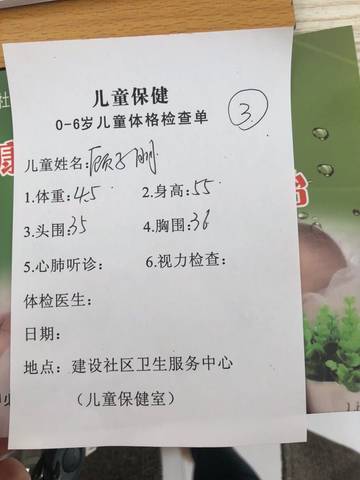 儿童保健
0-6岁儿童体格检查单
③
儿童姓名:
1.体重:4.5 2.身高:55
3.头围:35 4.胸围:36
5.心肺听诊: 6.视力检查:
体检医生:
日期:
地点: 建设社区卫生服务中心
(儿童保健室)
社
康